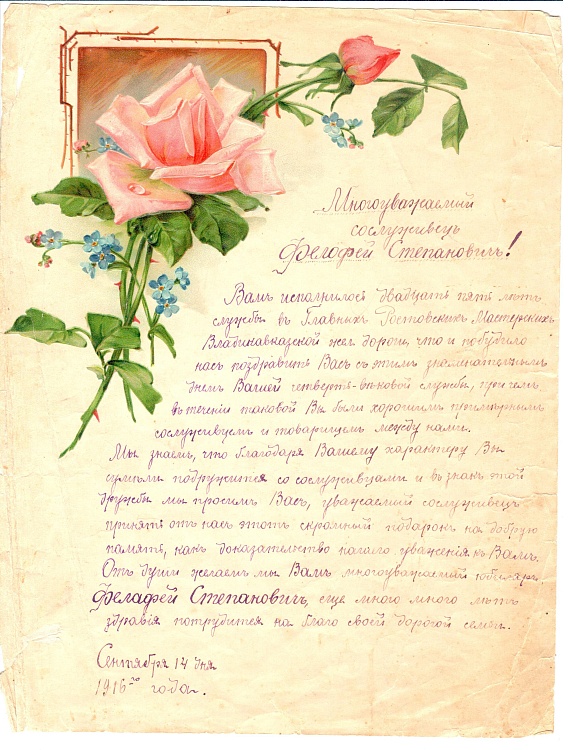 Многоуважаемый
сослуживецъ
Фелофей Степановичъ!
Вамъ исполнилося двадцать пять лѣтъ
службы въ Главныхъ Ростовскихъ Мастерскихъ
Владикавказской жел. дороги, что и побудило
насъ поздравить Васъ съ этимъ знаменательнымъ
днемъ Вашей четверть-вѣковой службы, при чемъ
въ течении таковой Вы были хорошимъ примѣрнымъ
сослуживцемъ и товарищемъ между нами.
Мы знаемъ, что благодаря Вашему характеру Вы
сумѣли подружится со сослуживцами и въ знакъ этой
дружбы мы просимъ Васъ, уважаемый сослуживецъ
принять отъ насъ этотъ скромный подарокъ на добрую
память, какъ доказательство нашего уваженія къ Вамъ.
Отъ души желаемъ мы Вамъ многоуважаемый юбиляръ
Фелафей Степановичъ, еще много много лѣтъ
здравія потрудится на благо своей дорогой семьи.
Сентября 14 дня
1916го года.